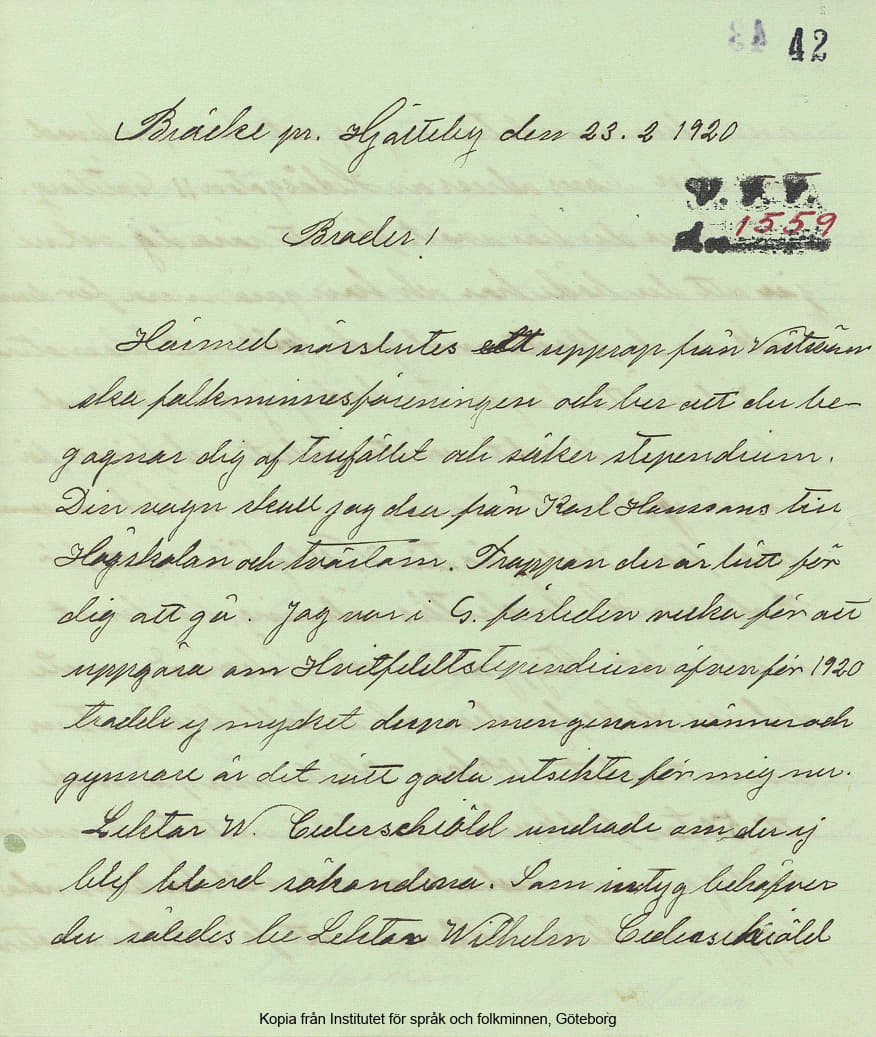 42
Bräcke pr. Hjälteby den 23.2 1920
V. F. F.
1559
Broder!
Härmed närslutes ett upprop från Västsven
ska folkminnesföreningen och ber att du be-
gagnar dig af tillfället och söker stependium.
Din vagn skall jag dra från Karl Hanssons till
Högskolan och tvärtom. Trappan der är lätt för
dig att gå. Jag var i G. förleden vecka för att
uppgöra om Hvitfeldtstependium äfven för 1920
trodde ej mycket derpå men genom vänner och
gynnare är det rätt goda utsikter för mig nu.
Lektor W. Cederschiöld undrade om du ej
blef bland sökanderna. Som intyg behöfver
du således be Lektor Wilhelm Cederschiöld
Kopia från Institutet för språk och folkminnen, Göteborg